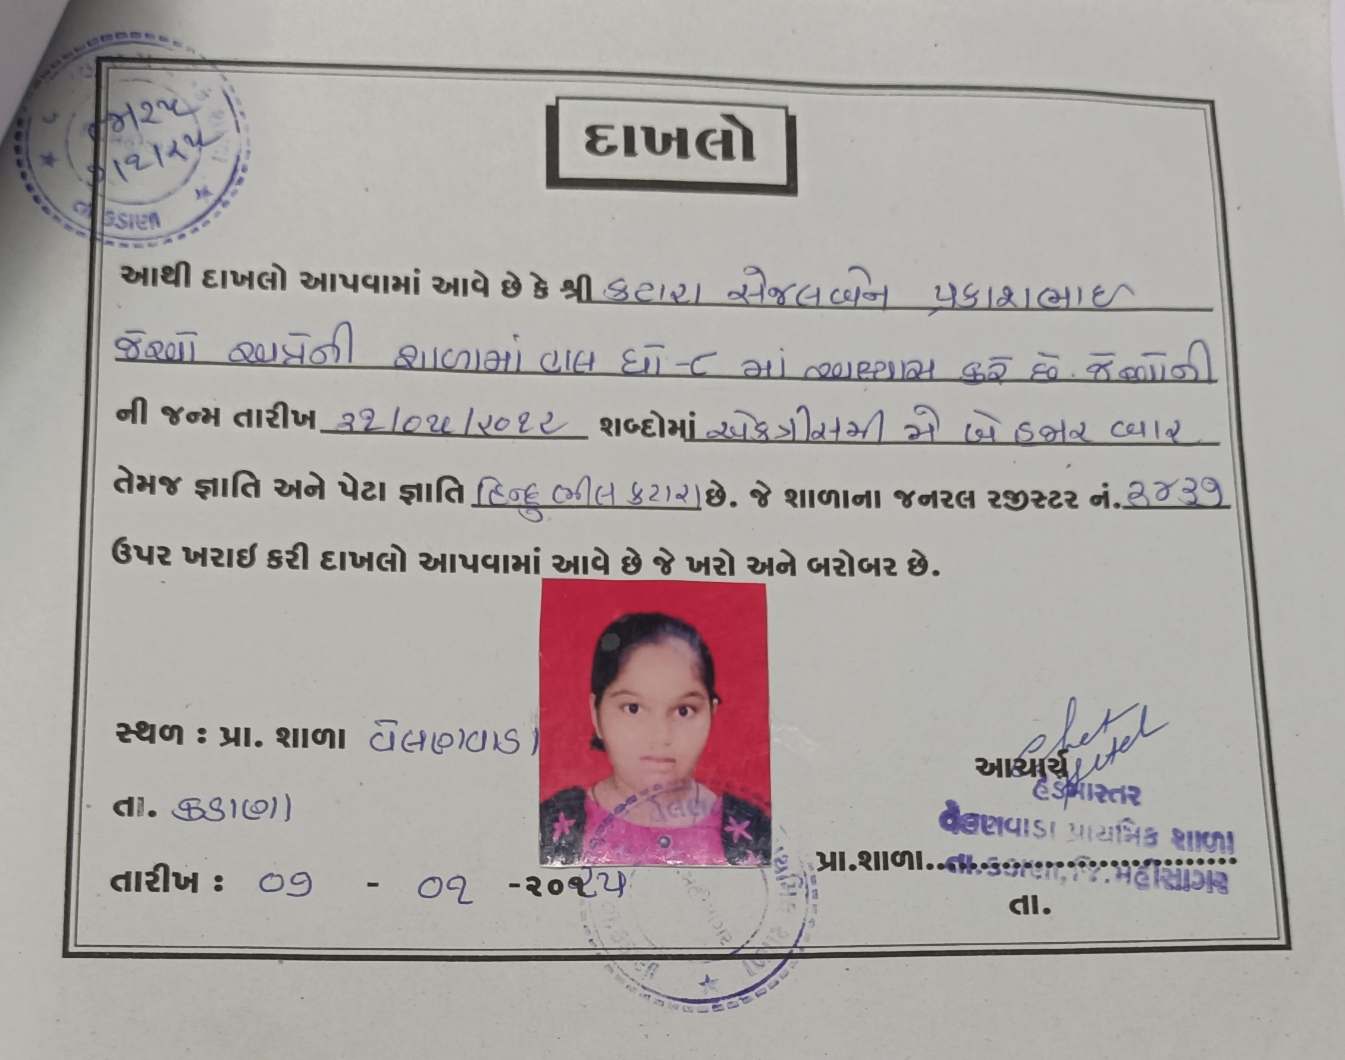 જા.નં.૨૫
૭/૧/૨૫
દાખલો
આથી દાખલો આપવામાં આવે છે કે શ્રી કટારા સેજલબેન પ્રકાશભાઇ
જેઓ અત્રેની શાળામાં હાલ ધો-૮ માં અભ્યાસ કરે છે. જેઓની
ની જન્મ તારીખ ૩૧/૦૫/૨૦૧૨ શબ્દોમાં એકત્રીસમી મે બે હજાર બાર
તેમજ જ્ઞાતિ અને પેટા જ્ઞાતિ હિન્દુ ભીલ કટારા છે. જે શાળાના જનરલ રજીસ્ટર નં. ૨૪૩૭
ઉપર ખરાઈ કરી દાખલો આપવામાં આવે છે જે ખરો અને બરોબર છે.
સ્થળ : પ્રા. શાળા વેલણવાડા
તા. કડાણા
તારીખ : ૦૭ - ૦૧ -૨૦૨૫
આચાર્ય
હેડમાસ્તર
વેલણવાડા પ્રાથમિક શાળા
પ્રા.શાળા..તા.કડાણા, જિ.મહીસાગર
તા.